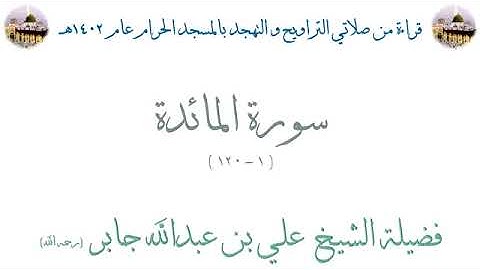 قراءة من صلاتي التراويح و التهجد بالمسجد الحرام عام ١٤٠٢هـ
سورة المائدة
( ١ - ١٢٠ )
فضيلة الشيخ علي بن عبدالله جابر (رحمه الله)